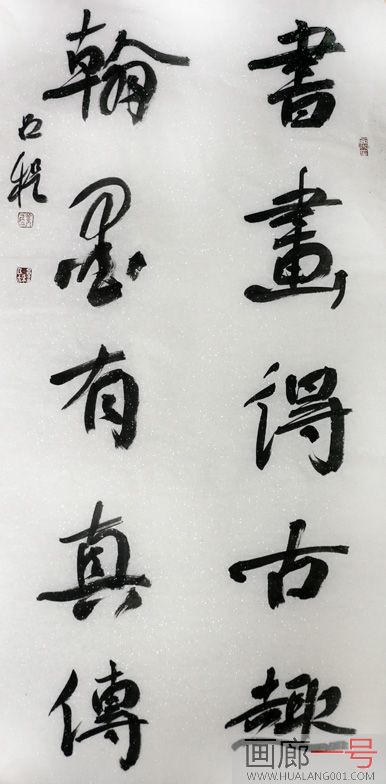 書畫得古趣
翰墨有真傳
画廊一号
WWW.HUALANG001.COM